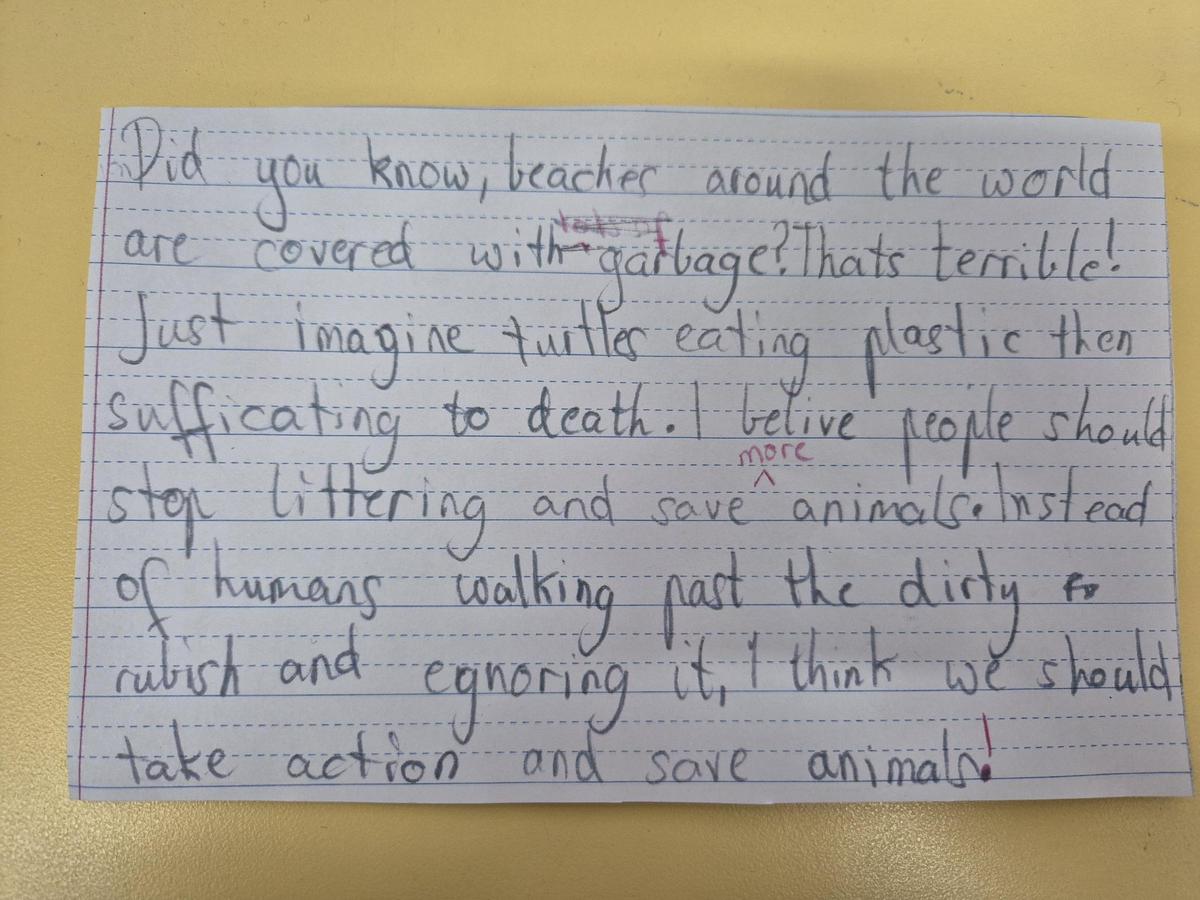 Did you know, beaches around the world
are covered with garbage? Thats terrible!
Just imagine turtles eating plastic then
sufficating to death. I belive people should
more
stop littering and save animals. Instead
of humans walking past the dirty
rubish and egnoring it, I think we should
take action and save animals!